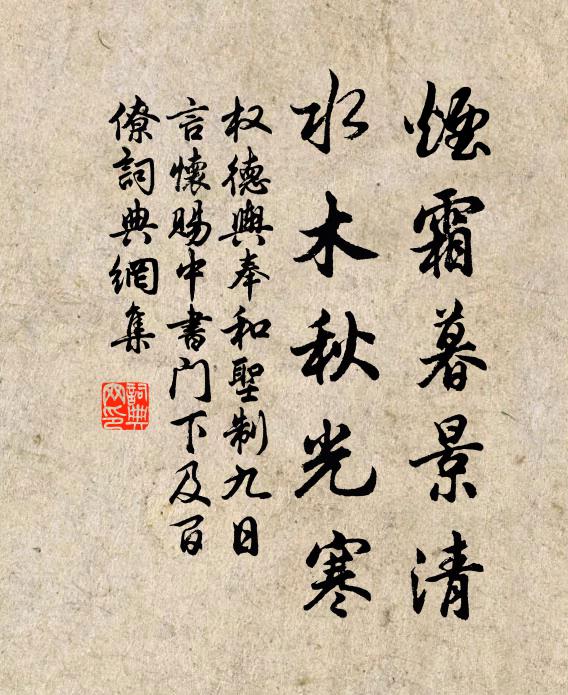 煙霜暮景清
水木秋光寒
权德輿奉和聖制九日
言懷賜中書門下及百
僚詞典網集
詞典
网印